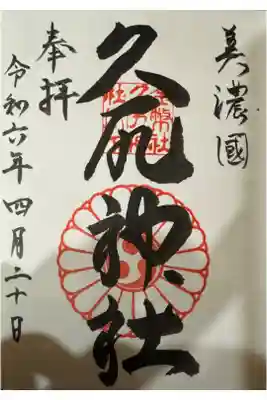 美濃國
久尻神社
奉拝
令和六年四月二十日